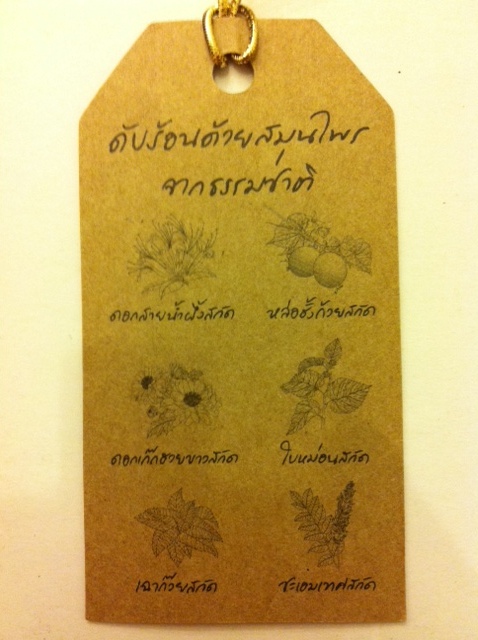 ดับร้อนด้วยสมุนไพร
จากธรรมชาติ
ดอกสายน้ำผึ้งสกัด
หล่อฮั้งก้วยสกัด
ดอกเก๊กฮวยขาวสกัด
ใบหม่อนสกัด
เฉาก๊วยสกัด
ชะเอมเทศสกัด